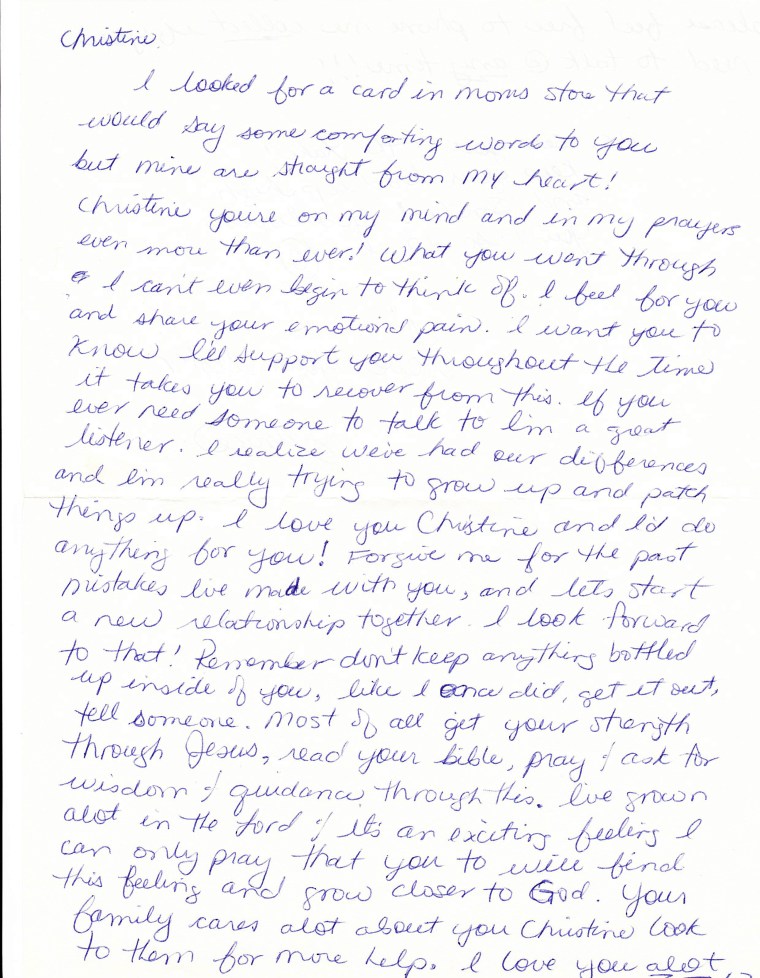 Christine
I looked for a card in moms store that
would say some comforting words to you
but mine are straight from my heart!
Christine you're on my mind and in my prayers
even more than ever! What you went through
I can't even begin to think of. I feel for you
and share your emotional pain. I want you to
know I'll support you throughout the time
it takes you to recover from this. If you
ever need someone to talk to I'm a great
listener. I realize we've had our differences
and I'm really trying to grow up and patch
things up. I love you Christine and I'd do
anything for you! Forgive me for the past
mistakes I've made with you, and lets start
a new relationship together. I look forward
to that! Remember don't keep anything bottled
up inside of you, like I once did, get it out,
tell someone. Most of all get your strength
through Jesus, read your bible, pray & ask for
wisdom & guidance through this. I've grown
alot in the Lord & it's an exciting feeling I
can only pray that you to will find
this feeling and grow closer to God. Your
family cares alot about you Christine look
to them for more help. I love you alot,